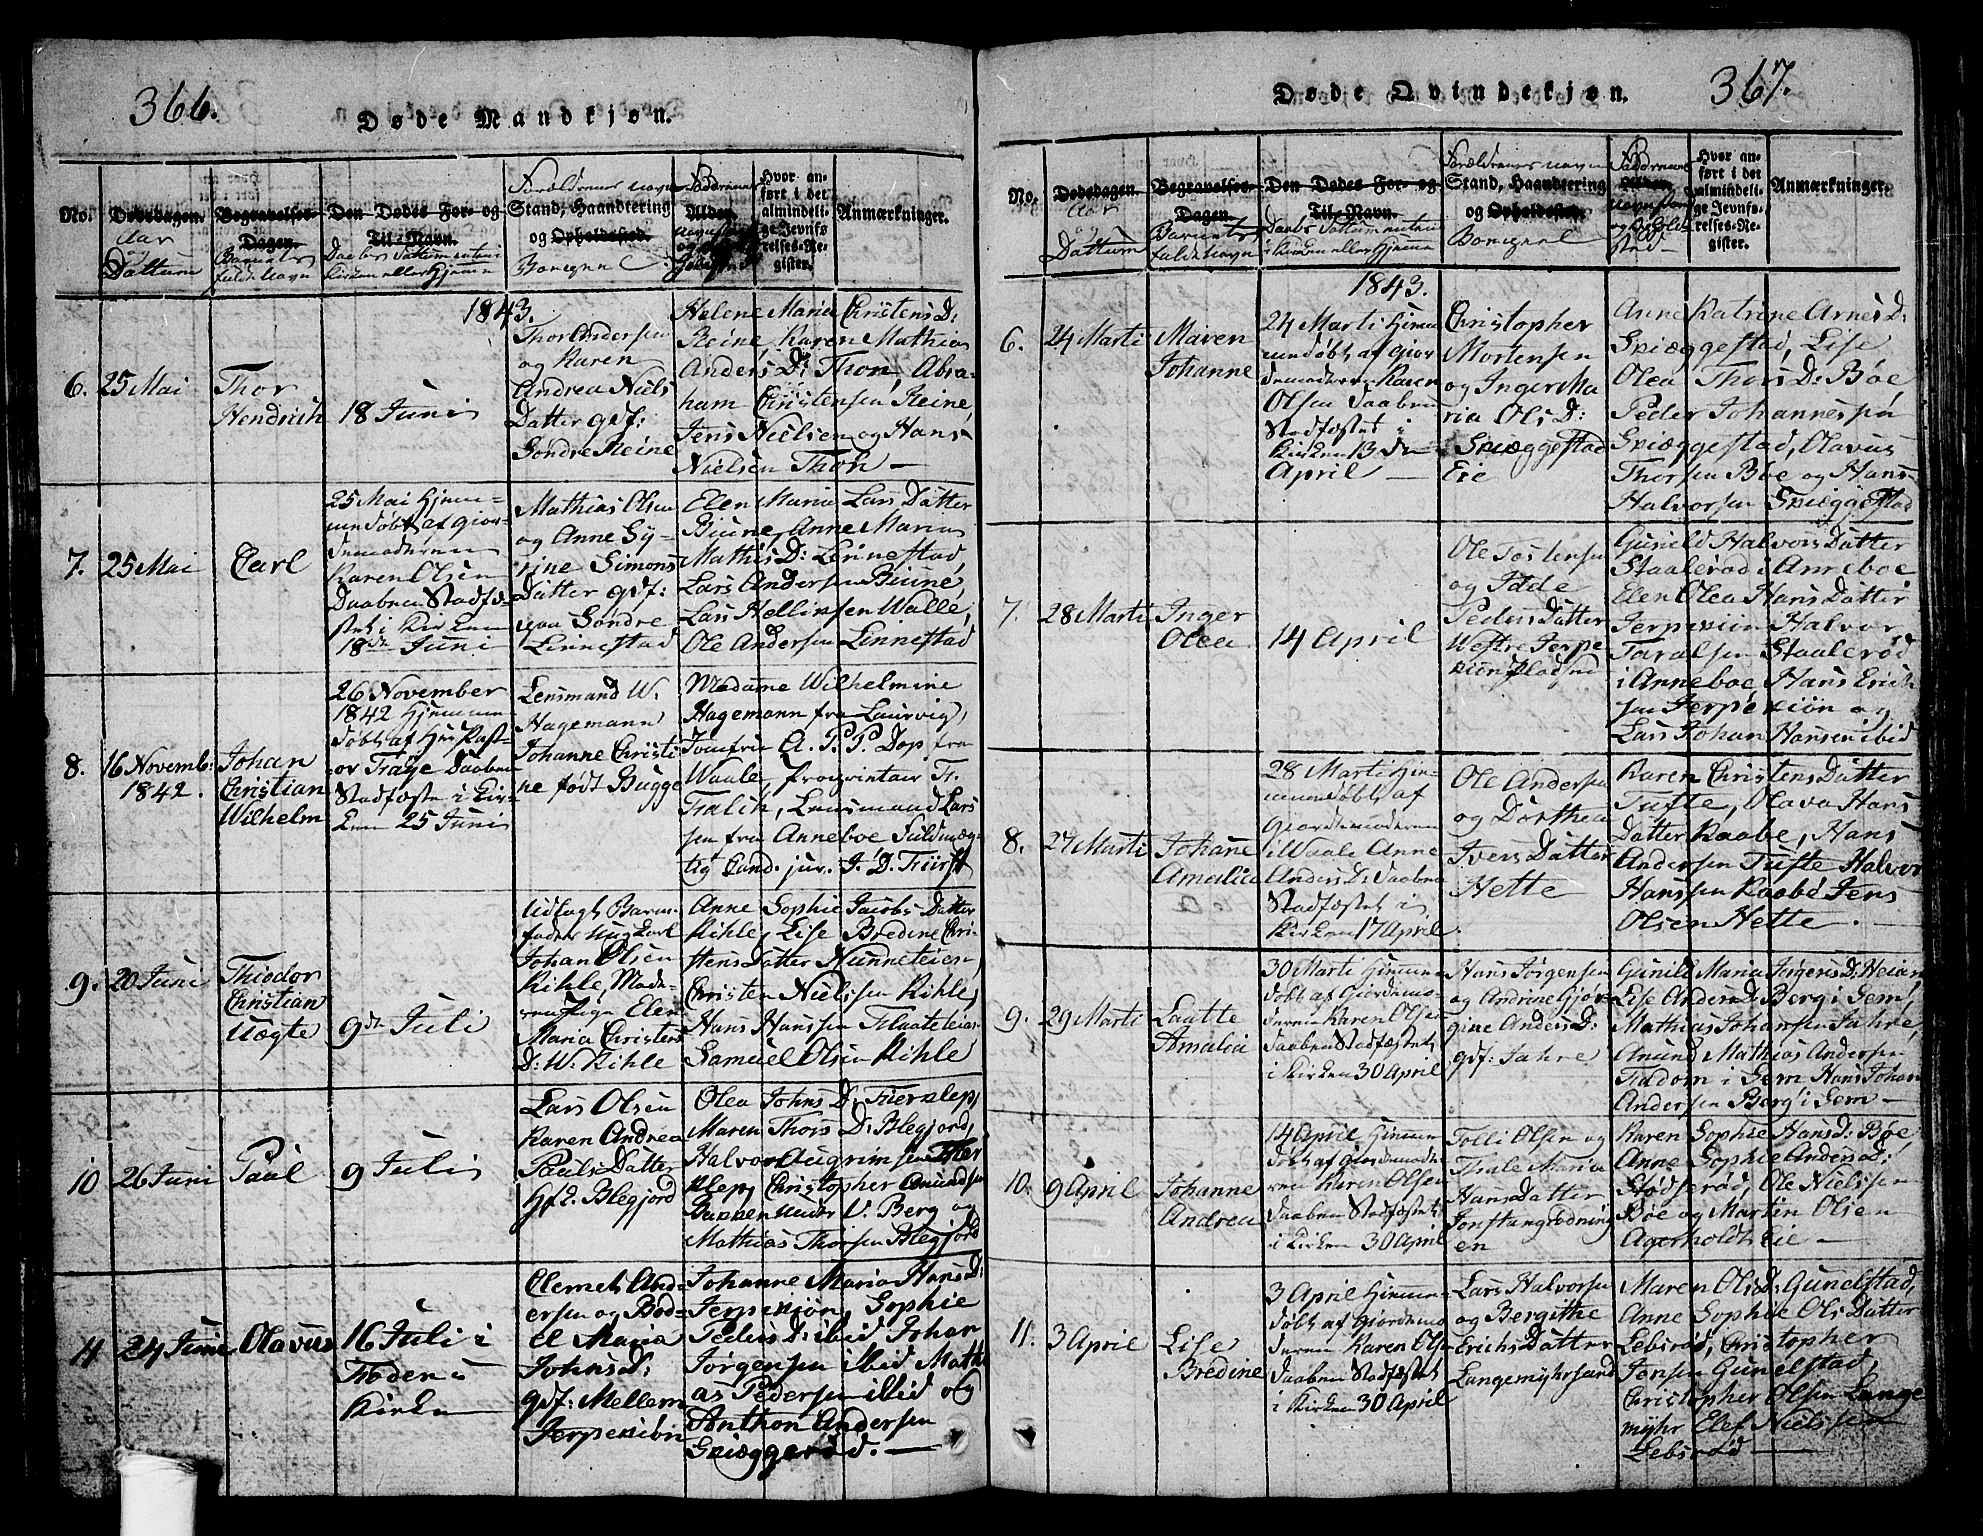 366.
Døde Mandkjøn.
No.
Dødsdagen.
Aar
og
Dattum
Begravelses-
Dagen.
Barnets
fulde Navn
Den Dødes For- og
Til-Navn.
Daabs Dattum enten i
Kirken eller Hjemme
Forældrenes navn
Stand, Haandtering
og Opholdssted.
Boepæl
Faddernes
Alder.
Navn
og
Hvor an-
ført i det
almindeli-
ge Jevnfø-
relses-Re-
gister.
Anmærkninger.
1843.
6.
25 Mai
Thor
Hendrich
18 Juni
Thor Andersen
og Karen
Andrea Niels
Datter gdf:
Søndre Reine
Helene Maria Christens D:
Reine, Karen Mathias
Anders D: Thon, Abra-
ham Christensen Reine,
Jens Nielsen og Hans
Nielsen Thon —
7.
25 Mai
Carl
25 Mai Hjem-
mendøbt af Gior-
demoderen
Karen Olsen
Daaben Stadfæ-
stet i Kirken
18de Juni
Mathias Olsen
og Anne Sy-
rine Simons
Datter gdf:
paa Søndre
Linnestad
Elen Maria Lars Datter
Biune, Anne Maria
Mathis D: Linnestad,
Lars Andersen Biune,
Lars Hellissen Walle,
Ole Andersen Linnestad
8.
16 Novemb:
1842.
Johan
Christian
Wilhelm
26 November
1842 Hjemme
døbt af Hr. Past-
or Fraye Daaben
Stadfæste i Kir-
ken 25 Juni
Lensmand W.
Hagemann
Johanne Christi
ne født Bugge
Madame Wilhelmine
Hagemann fra Laurvig,
Jomfru A. P. P. Dop fra
Waale, Fr.
Falck, Lensmand Lars
sen fra Anneboe Fuldmæg
tig Cand. jur. J. D. Fürst
9.
20 Juni
Thiodor
Christian
Uægte
9de Juli
Udlagt Barne-
fader Ungkarl
Johan Olsen
Kihle, Mode-
ren Pige Elen
Maria Christens
D: W: Kihle
Anne Sophie Jacobs Datter
Kihle, Lise Bredine Chri-
stens Datter Nunneteien,
Christen Nielssen Kihle,
Hans Hanssen Flaateteien
Samuel Olsen Kihle
10
26 Juni
Paul
9 Juli
Lars Olsen
Karen Andrea
Pauls Datter
Gf: Blegjord
Olea Johns D: Fuerslep,
Maren Thors D: Blegjord,
Halvor Augrimsen Fuer
slep, Christopher Amundsen
under V. Berg og
Mathias Thorsen Blegjord
11
24 Juni
Olavus
16 Juli i
Foden
Kirke
Clemet And-
ersen og Bod-
el Maria
Johns D:
gdf: Mellem
Jerpekiøn
Johanne Maria Hans D:
Jerpekiøn, Sophie
Peders D: ibid Johan
Jørgensen ibid Mathi
as Pedersen ibid og
Anthon Andersen
Skiæggerød. —
Døde Qvindekjøn.
367.
No.
Dødsdagen.
Aar
og
Dattum
Begravelses-
Dagen.
Barnets
fulde Navn
Den Dødes For- og
Til-Navn.
Daabs Dattum enten
i Kirken eller Hjemme
Forældrenes navn
Stand, Haandtering
og Opholdssted.
Boepæl
Faddernes
Alder.
Navn
og Opholds
sted
Hvor an-
ført i det
almindeli-
ge Jevnfø-
relses-Re-
gister.
Anmærkninger.
1843.
6.
24 Marti
Maren
Johanne
24 Marti Hjem
mendøbt af Gior
demoderen Karen
Olsen Daaben
Stadfæstet i
Kirken 13 de
April —
Christopher
Mortensen
og Inger Ma
ria Ols D:
Skiæggestad
Eie
Anne Katrine Arnes D:
Skiæggestad, Lise
Olea Thors D: Bøe
Peder Johannessen
Skiæggestad, Olavus
Thorsen Bøe og Hans
Halvorsen Skiæggestad
7.
28 Marti
Inger
Olea
14 April
Ole Tostensen
og Idde
Peders Datter
Westre Jerpe
kiøn plodsen
Gunild Halvors Datter
Staalerød i Anneboe
Elen Olea Hans Datter
Jerpekiøn Halvor
Taralsen Staalerød
i Anneboe Hans Erick
sen Jerpekiøn og
Lars Johan Hansen ibid
8.
27 Marti
Johanne
Amalia
28 Marti Hjem-
mendøbt af
Giordemoderen
i Waale Anne
Anders D: Daaben
Stadfæstet i
Kirken 17 April
Ole Andersen
og Dorthea
Ivers Datter
Hette
Karen Christens Datter
Tufte, Olava Hans
Datter Raabe, Hans
Andersen Tufte Halvor
Hanssen Raabe Jens
Olsen Hette.
9.
29 Marti
Lautte
Amalia
30 Marti Hjemme
døbt af Giordemo-
deren Karen Olsen
Daaben Stadfæstet
i Kirken 30 April
Hans Jørgensen
og Andrine Gjør
gine Anders D:
gdf: Jahre
Gunild Maria Jørgens D: Heian
Lise Anders D: Berg i Sem,
Mathias Johansen Jahre,
Anund Mathias Andersen
Faldom i Sem Hans Johan
Andersen Berg i Sem —
10.
9 April
Johanne
Andrea
14 April Hjemme
døbt af Giordemode
ren Karen Olsen
Daaben Stadfæstet
i Kirken 30 April
Tolli Olsen og
Thale Maria
Hans Datter
Jonstangrødning
en
Karen Sophie Hans D: Bøe
Anne Sophie Anders D:
Stødserød, Ole Nielssen
Bøe og Martin Olsen
Agerholdt Eie —
11.
3 April
Lise
Bredine
3 April Hjemme
døbt af Giordemo
deren Karen Olsen
Daaben Stadfæstet
i Kirken 30 April
Lars Halvorsen
og Bergithe
Erichs Datter
Langemyhrsand
Maren Ols D: Gunelstad,
Anne Sophie Ols Datter
Lebsrød, Christopher
Jonsen Gunelstad,
Christopher Olsen Lange
myhr Elef Nielssen
Lebsrød —